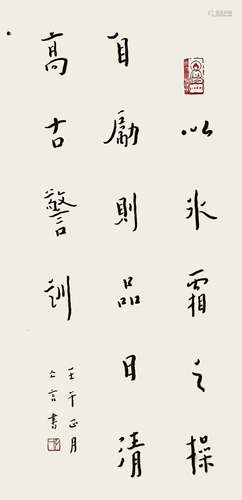 以氷霜之操
自勵則品日清
高古警訓
壬午正月
言書